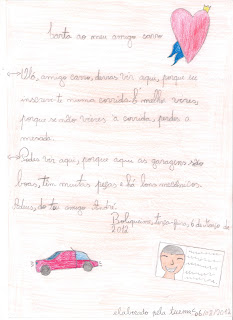 Carta ao meu amigo carro
- Olá, amigo carro, devias vir aqui, porque eu
inscrevi-te numa corrida. É melhor vires,
porque se não vieres à corrida, perdes a
mesada.
- Podes vir aqui, porque aqui as garagens são
boas, têm muitas peças e há bons mecânicos.
Adeus, do teu amigo André
Boliqueime, terça-feira, 6 de março de
2012
elaborado pela 06/03/2012